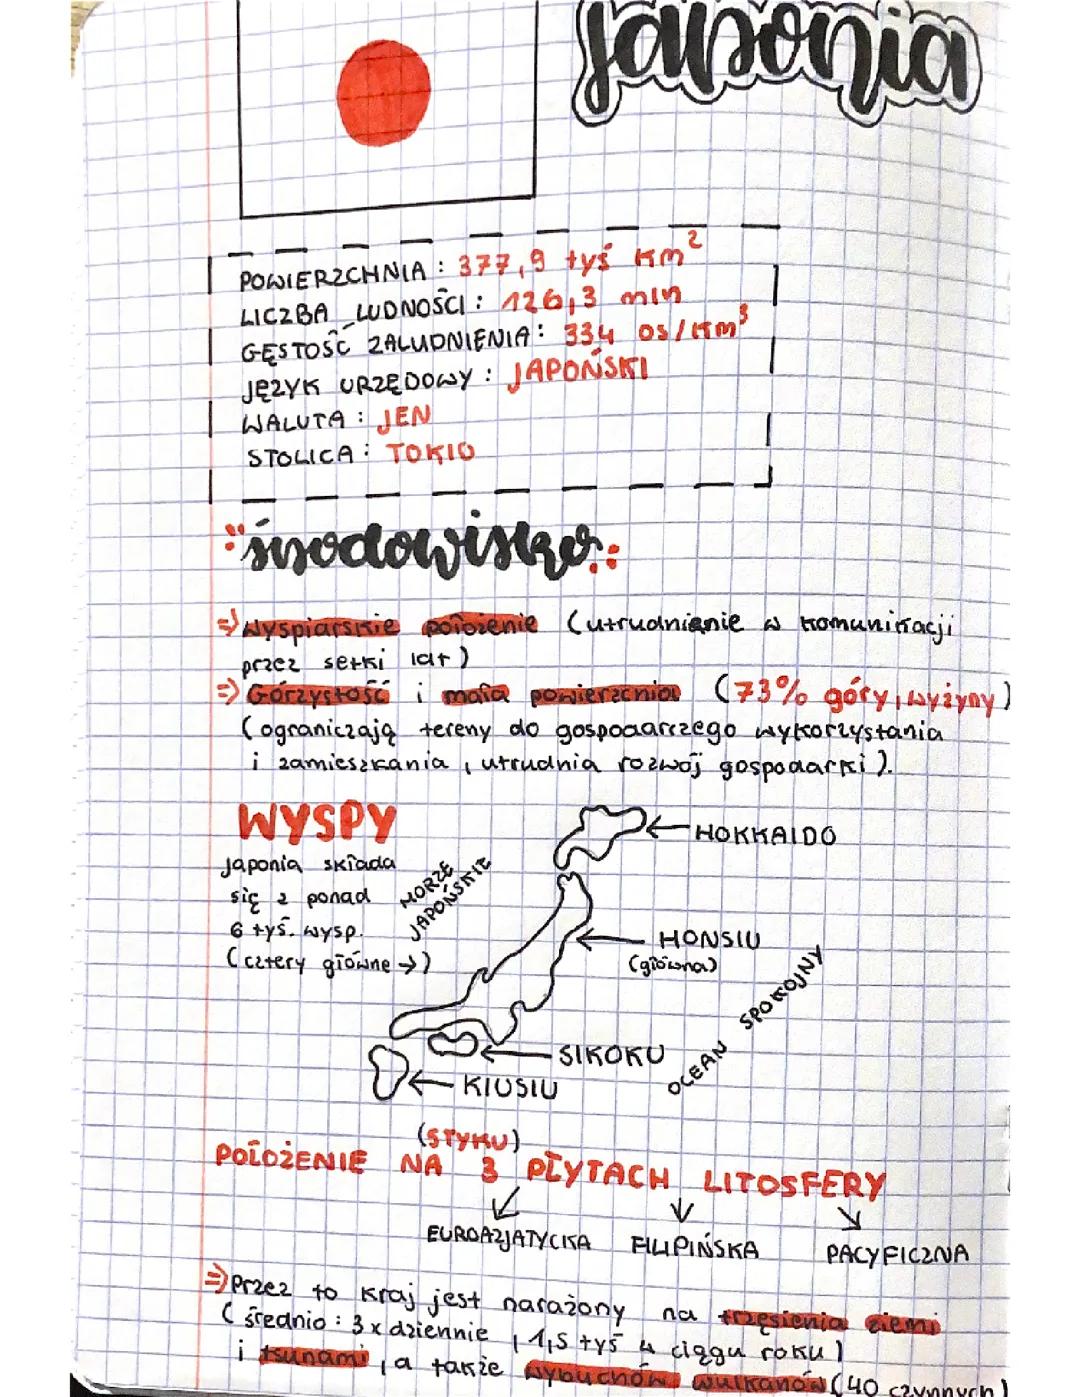 Japonia
POWIERZCHNIA: 377,9 tyś km²
LICZBA LUDNOŚCI: 126,3 mln
GĘSTOŚĆ ZALUDNIENIA: 334 os/km³
JĘZYK URZĘDOWY: JAPOŃSKI
WALUTA: JEN
STOLICA: TOKIO
środowisko:
=> Wyspiarskie położenie (utrudnienie w komunikacji
przez setki lat)
=> Górzystość i mała powierzchnia (73% góry, wyżyny)
(ograniczają tereny do gospodarczego wykorzystania
i zamieszkania, utrudnia rozwój gospodarki).
WYSPY
Japonia składa
się z ponad
6 tyś. wysp.
(cztery główne →)
MORZE
JAPOŃSKIE
HOKKAIDO
HONSIU
(główna)
OCEAN SPOKOJNY
SIKOKU
KIUSIU
(STYKU)
POŁOŻENIE NA 3 PŁYTACH LITOSFERY
EUROAZJATYCKA FILIPIŃSKA PACYFICZNA
=> Przez to kraj jest narażony na trzęsienia ziemi
(średnio: 3x dziennie, 1,5 tyś w ciągu roku)
i tsunami, a także wybuchów wulkanów (40 czynnych)